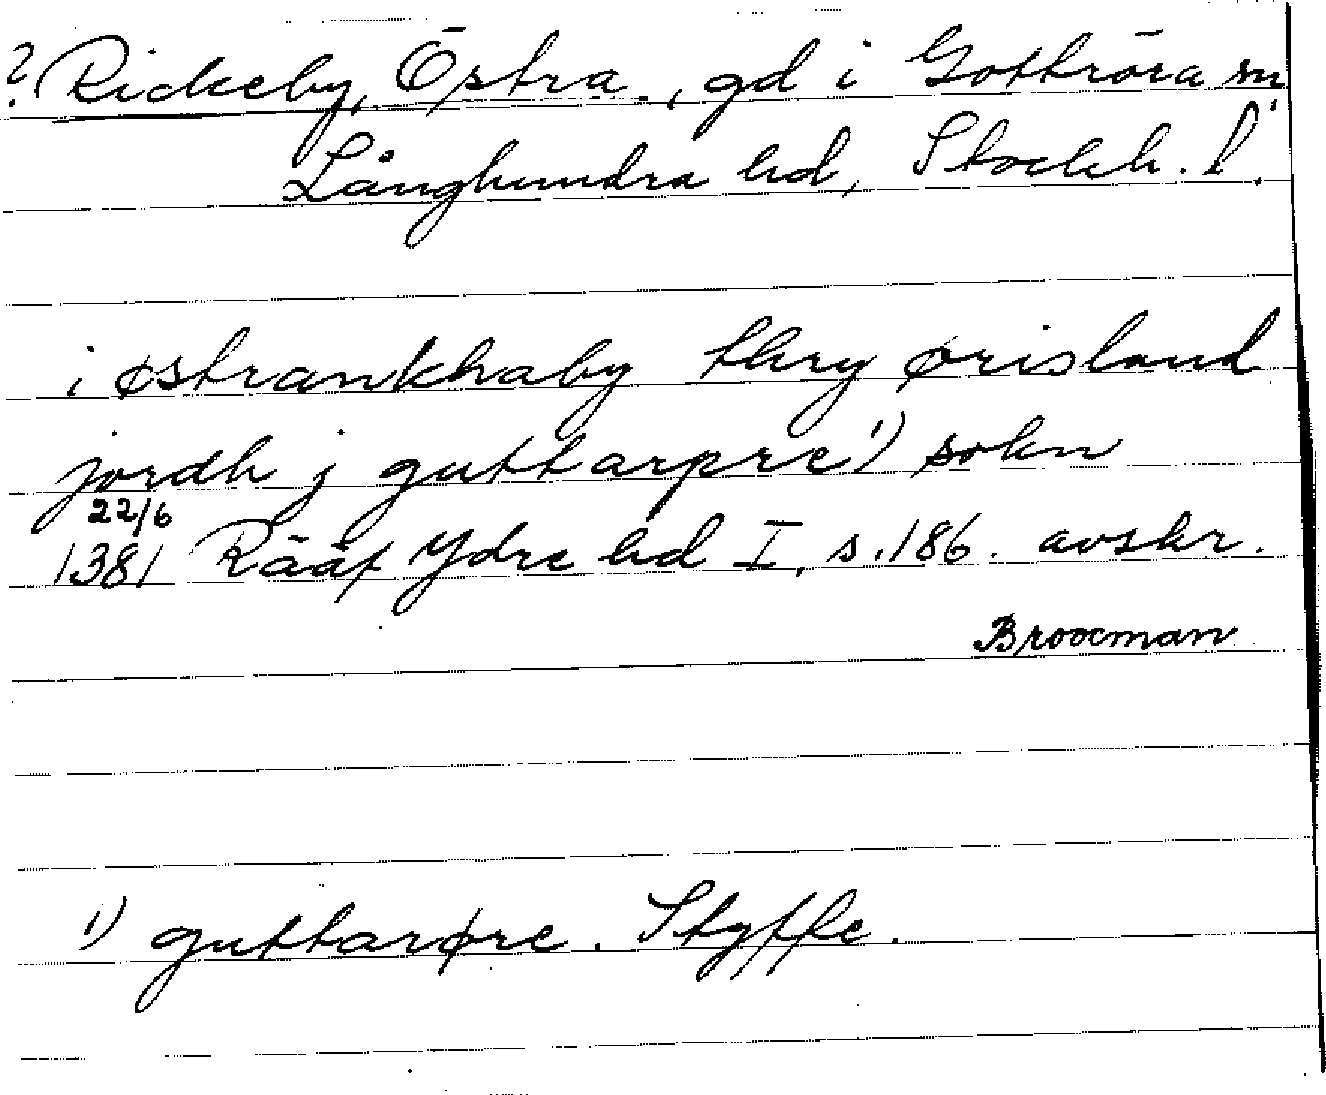 ? Rickeby, Östra, gd i Gottröra sn
Långhundra hd, Stockh. l.
i østrankhaby thry ørisland
jordh j guttarpre 1) sokn
22/6
1381 Rääf Ydre hd I, s. 186. avskr.
Broocman
1) guttarøre. Styffe.